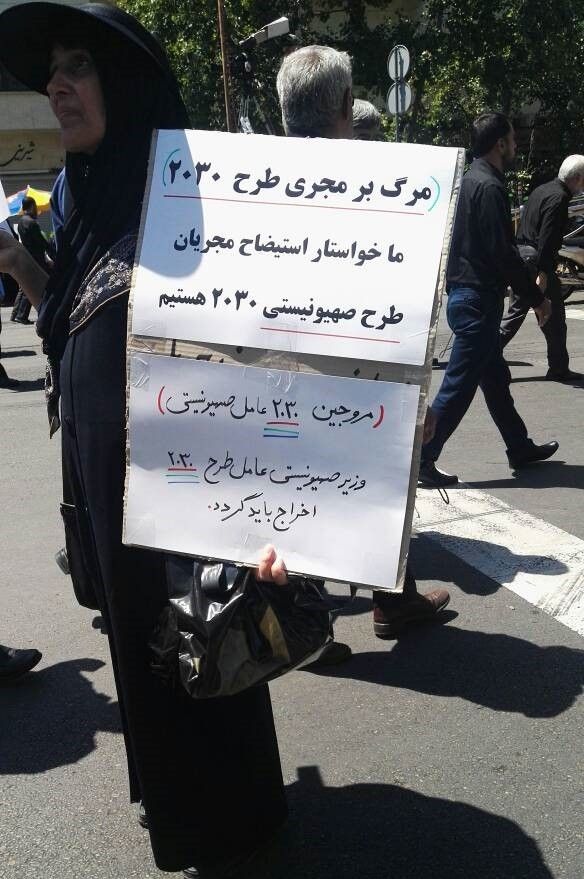 شیرینی
(مرگ بر مجری طرح ۲۰۳۰)
ما خواستار استیضاح مجریان
طرح صهیونیستی ۲۰۳۰ هستیم
(مروجین ۲۰۳۰ عامل صهیونیستی)
وزیر صهیونیستی عامل طرح ۲۰۳۰
اخراج باید گردد.